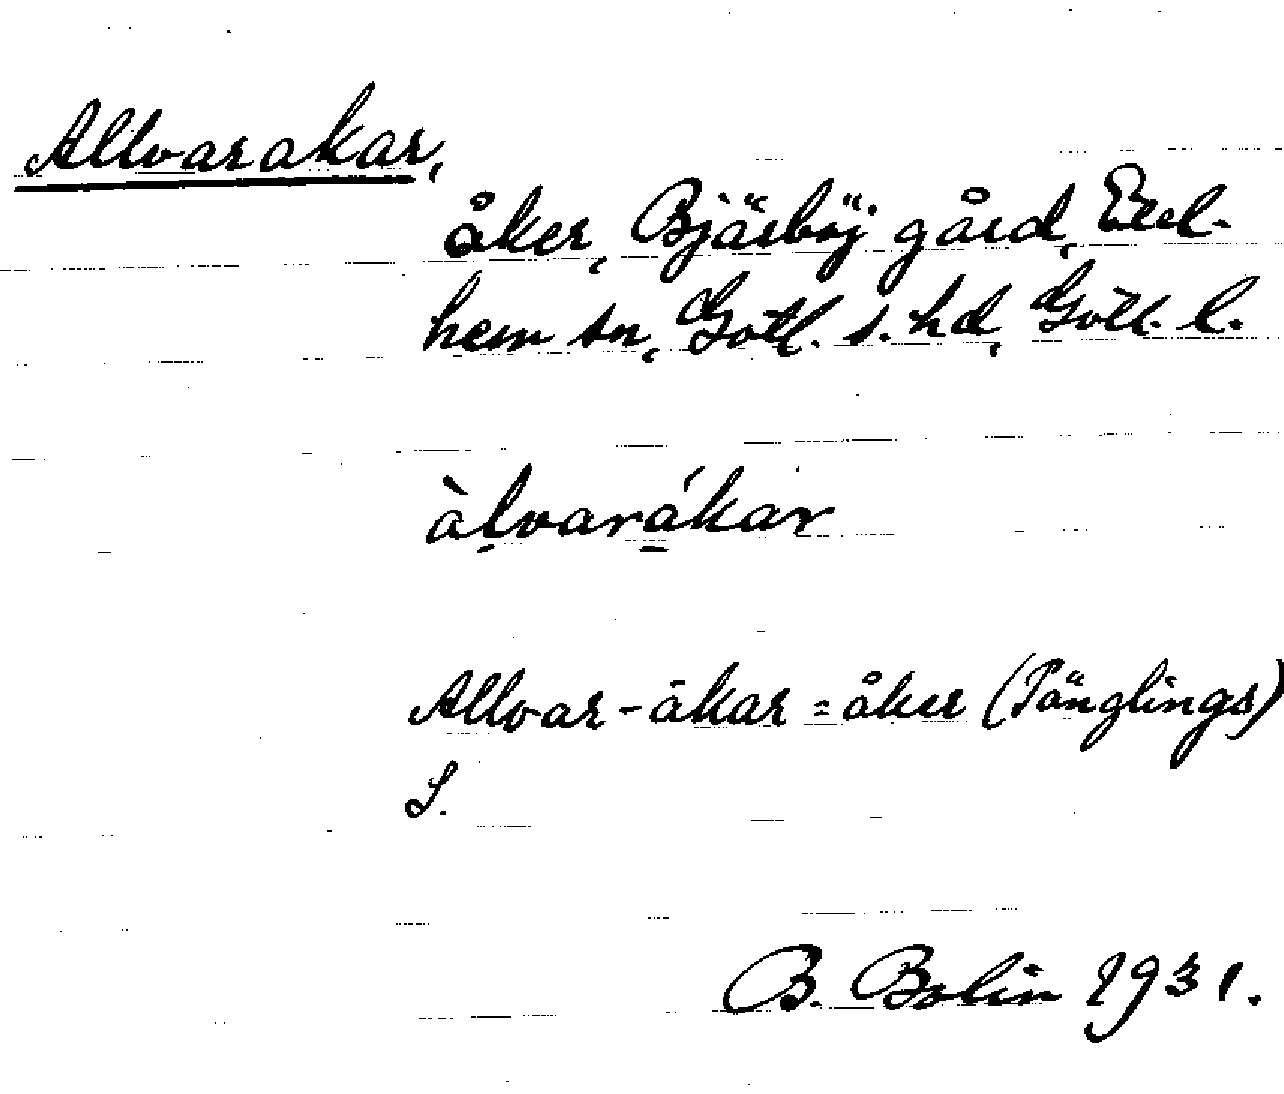 Allvarakar,
åker, Bjärböj gård, Ecel-
hem sn, Gotl. s. hd, Gotl. l.
àḷvarákar
Allvar-ákar = åker (Tänglings)
S.
B. Bolin 1931.